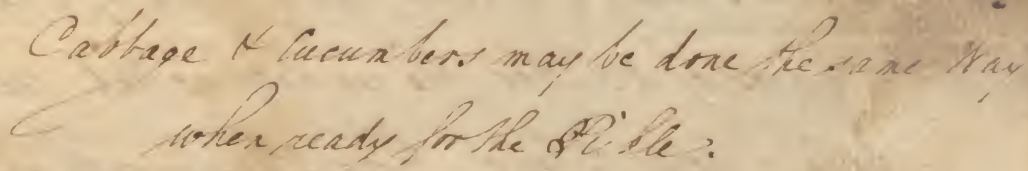 Cabbage & Cucumbers may be done the same Way
when ready for the Pickle.